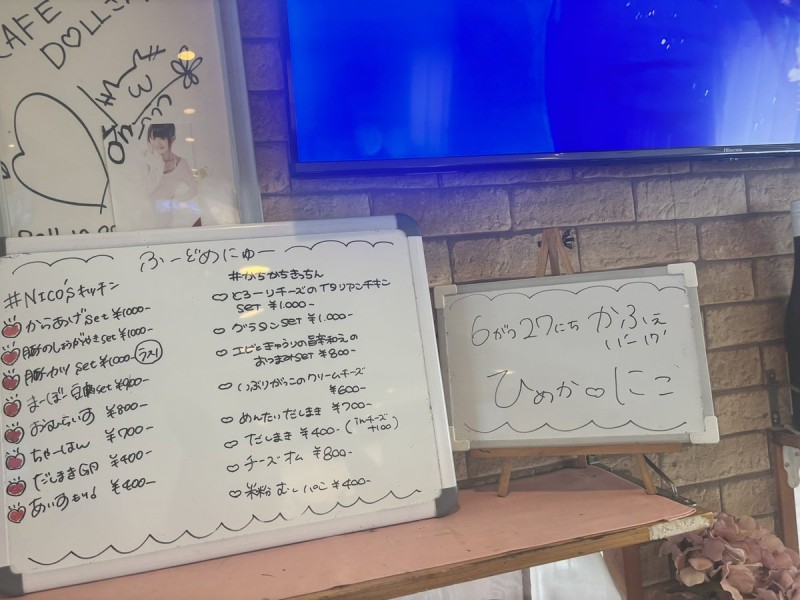 CAFE
DOLL
ふーどめにゅー
#NICO'sキッチン
からあげset ¥1000-
豚のしょうがやきset ¥1000-
豚カツ set ¥1000- ラスト
まーぼー豆腐set ¥900-
おむらいす ¥800-
ちゃーはん ¥700-
だしまき ¥400-
あいすもり ¥400-
#かちかちきっちん
とろーりチーズのイタリアンチキン
SET ¥1.000-
グラタン SET ¥1.000-
エビときゅうりの旨本和えの
おつまみSET ¥800-
いぶりがっこのクリームチーズ
¥600-
めんたいだしまき ¥700-
だしまき ¥400- (inチーズ
+100)
チーズオム ¥800-
米粉 むしパン ¥400-
6がつ27にち かふぇ
ひめか♡にこ
Hisense